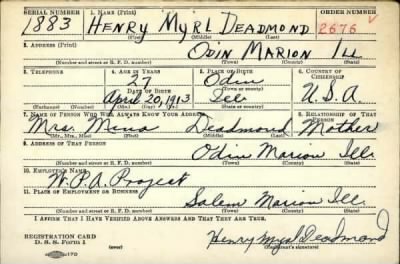 SERIAL NUMBER 1. NAME (Print) ORDER NUMBER
1883 HENRY MYRL DEADMOND 2676
(First) (Middle) (Last)
2. ADDRESS (Print)
ODIN MARION ILL
(Number and street or R. F. D. number) (Town) (County) (State)
3. TELEPHONE 4. AGE IN YEARS 5. PLACE OF BIRTH 6. COUNTRY OF CITIZENSHIP
27 Odin
DATE OF BIRTH (Town or county)
April 20, 1913 Ill U.S.A.
(Exchange) (Number) (Mo.) (Day) (Yr.) (State or country)
7. NAME OF PERSON WHO WILL ALWAYS KNOW YOUR ADDRESS 8. RELATIONSHIP OF THAT PERSON
Mrs. Mena Deadmond Mother
(Mr., Mrs., Miss) (First) (Middle) (Last)
9. ADDRESS OF THAT PERSON
Odin Marion Ill.
(Number and street or R. F. D. number) (Town) (County) (State)
10. EMPLOYER'S NAME
W.P.A. Project
11. PLACE OF EMPLOYMENT OR BUSINESS
Salem Marion Ill.
(Number and street or R. F. D. number) (Town) (County) (State)
I AFFIRM THAT I HAVE VERIFIED ABOVE ANSWERS AND THAT THEY ARE TRUE.
REGISTRATION CARD
D. S. S. Form 1 Henry Myrl Deadmond
(over) (Registrant's signature)